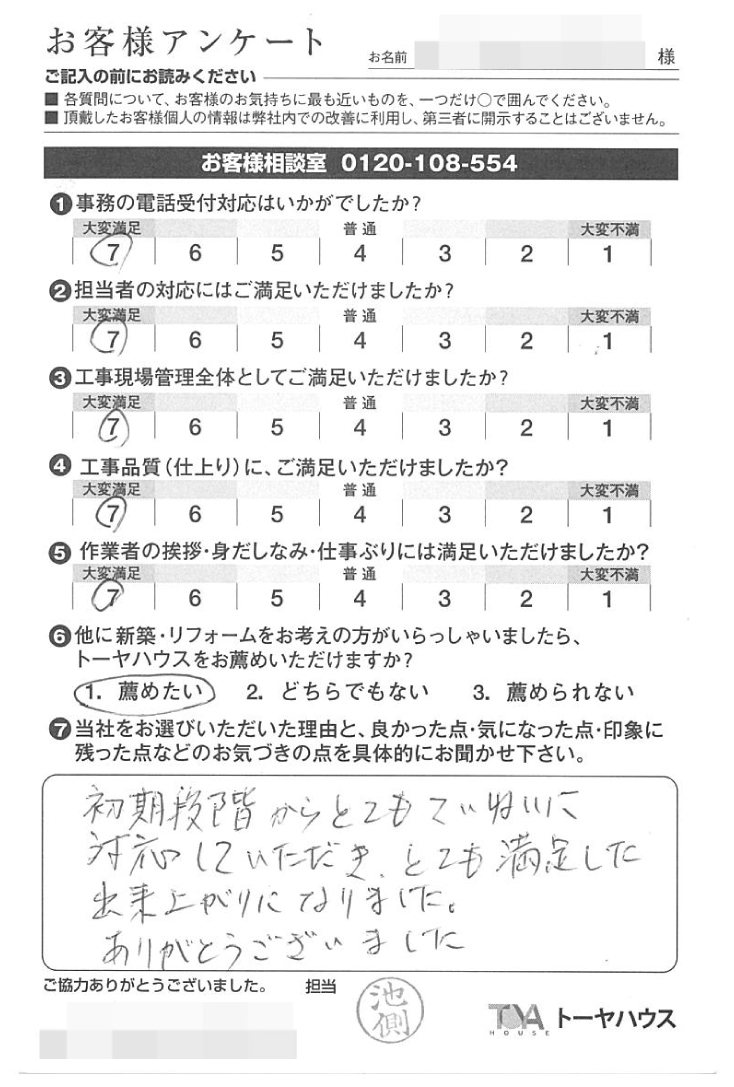 お客様アンケート
お名前 様
ご記入の前にお読みください
■ 各質問について、お客様のお気持ちに最も近いものを、一つだけ○で囲んでください。
■ 頂戴したお客様個人の情報は弊社内での改善に利用し、第三者に開示することはございません。
お客様相談室 0120-108-554
❶事務の電話受付対応はいかがでしたか？
大変満足 普通 大変不満
7 6 5 4 3 2 1
❷担当者の対応にはご満足いただけましたか？
大変満足 普通 大変不満
7 6 5 4 3 2 1
❸工事現場管理全体としてご満足いただけましたか？
大変満足 普通 大変不満
7 6 5 4 3 2 1
❹工事品質（仕上り）に、ご満足いただけましたか？
大変満足 普通 大変不満
7 6 5 4 3 2 1
❺作業者の挨拶・身だしなみ・仕事ぶりには満足いただけましたか？
大変満足 普通 大変不満
7 6 5 4 3 2 1
❻他に新築・リフォームをお考えの方がいらっしゃいましたら、
トーヤハウスをお薦めいただけますか？
1. 薦めたい 2. どちらでもない 3. 薦められない
❼当社をお選びいただいた理由と、良かった点・気になった点・印象に
残った点などのお気づきの点を具体的にお聞かせ下さい。
初期段階からとてもていねいに
対応していただき、とても満足した
出来上がりになりました。
ありがとうございました
ご協力ありがとうございました。 担当 池側
TOYA HOUSE トーヤハウス